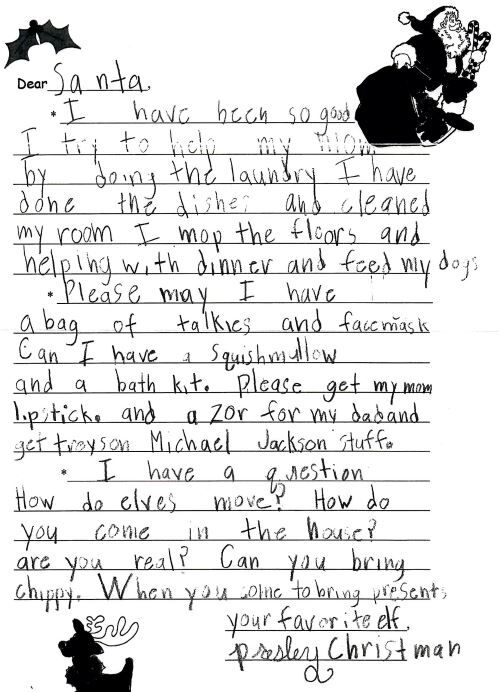 Dear Santa,
* I have been so good
I try to help my mom
by doing the laundry I have
done the dishes and cleaned
my room I mop the floors and
helping with dinner and feed my dogs
* Please may I have
a bag of talkies and facemask
Can I have a squishmullow
and a bath kit. Please get my mom
lipstick. and a zor for my dad and
get troyson Michael Jackson stuff.
* I have a question
How do elves move? How do
you come in the house?
are you real? Can you bring
chippy. When you come to bring presents
your favorite elf,
presley Christman